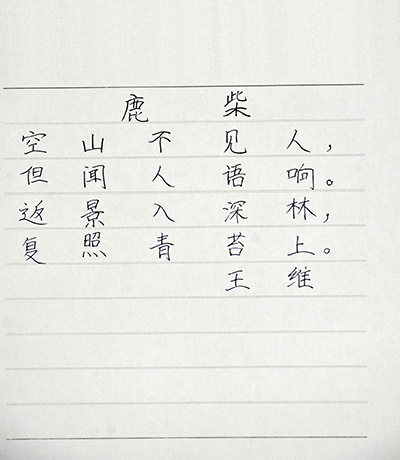 鹿柴
空山不见人，
但闻人语响。
返景入深林，
复照青苔上。
王维